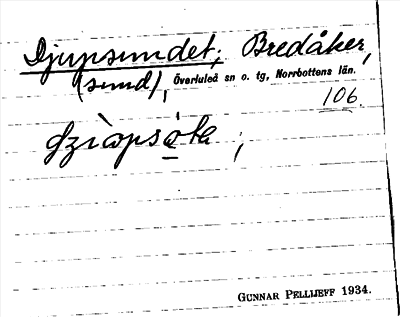 Djupsundet, Bredåker,
(sund), Överluleå sn o. tg, Norrbottens län.
106
GUNNAR PELLIJEFF 1934.